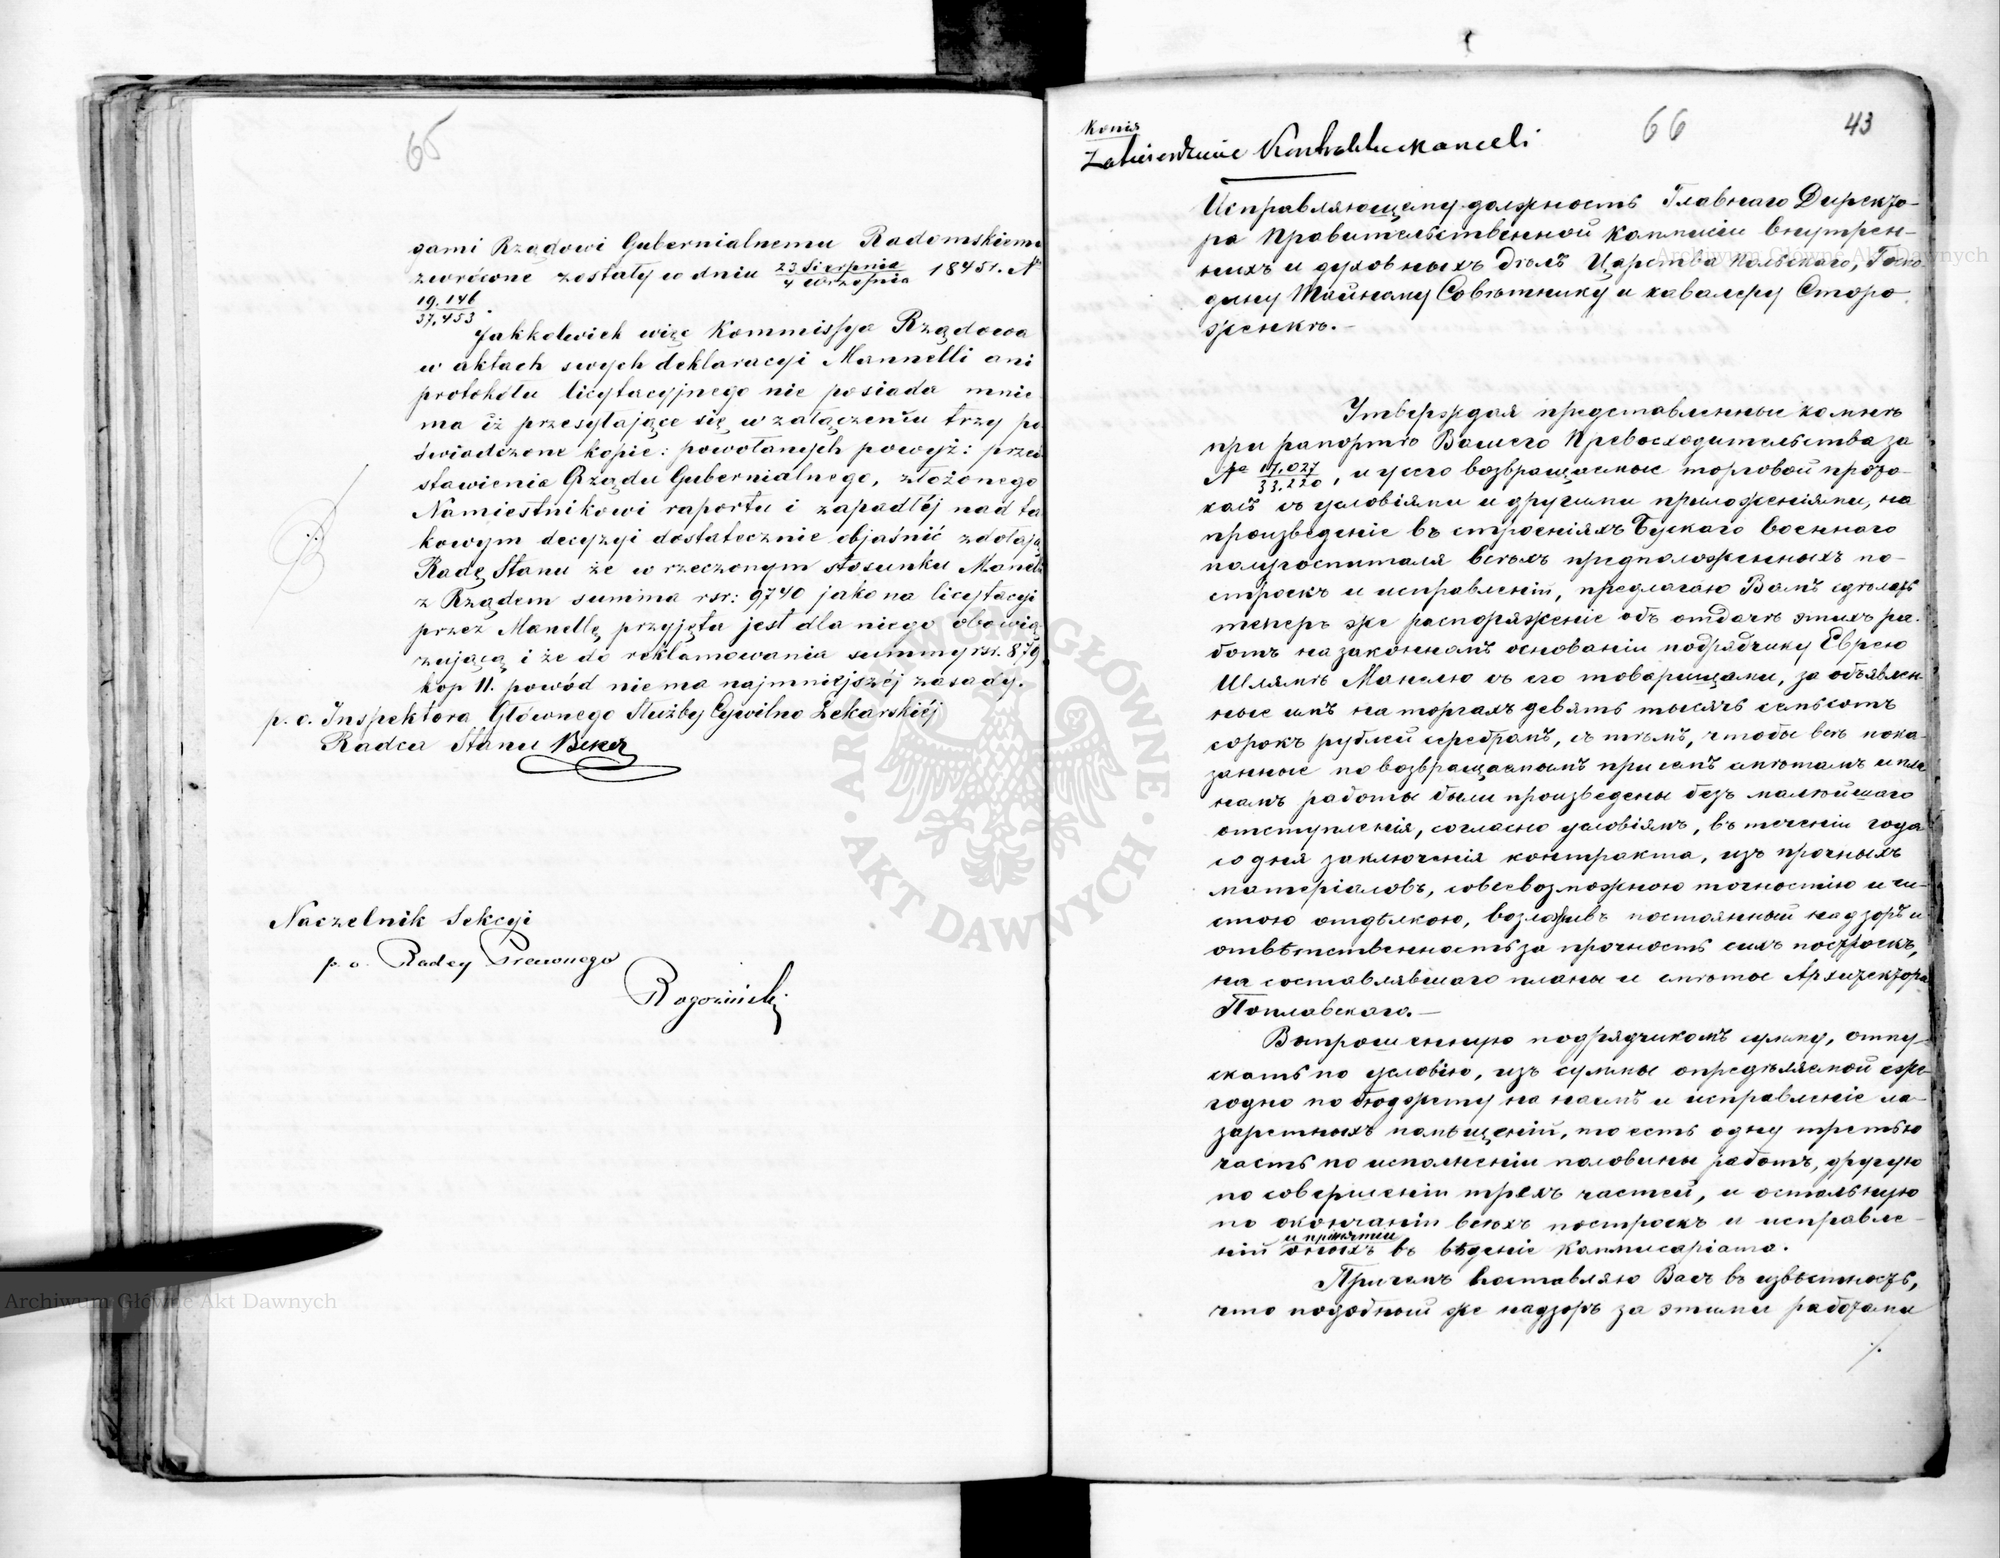 65
sami Rządowi Gubernialnemu Radomskiemu
zwrócone zostały w dniu 23 Sierpnia / 4 Września 1845 r. N
19.146 / 37,453.
Jakkolwiek więc Kommissya Rządowa
w aktach swych deklaracyi Mannelli ani
protokółu licytacyjnego nie posiada mnie
ma iż przesyłające się w załączeniu trzy po
świadczone kopie: powołanych powyż: przed
stawienia Rządu Gubernialnego, złożonego
Namiestnikowi raportu i zapadłéj nad ta
kowym decyzyi dostatecznie objaśnić zdołają
Radę Stanu że w rzeczonym stosunku Maneli
z Rządem summa rsr: 9740 jako na licytacyi
przez Manellę przyjęta jest dla niego obowią
zującą i że do reklamowania summy rsr. 879
kop 11. powód nie ma najmniejszéj zasady.
p. o. Inspektora Głównego Służby Cywilno Lekarskiéj
Radca Stanu Beker
Naczelnik Sekcyi
p. o. Radcy Prawnego
Rogoziński
Kopia
66
43
Zatwierdzenie Kontraktu Maneli
Исправляющему должность Главнаго Директо-
ра Правительственной Коммисіи Внутрен-
нихъ и духовныхъ дѣлъ Царства Польскаго, Госпо
дину Тайному Совѣтнику и кавалеру Сторо
женкѣ.—
Утверждая представленные ко мнѣ
при рапортѣ Вашего Превосходительства за
№ 17.027 / 33.220, и у сего возвращаемые торговой прото-
колъ съ условіями и другими приложеніями, на
произведеніе въ строеніяхъ Бускаго военнаго
полугоспиталя всѣхъ предположенныхъ по-
строекъ и исправленій, предлагаю Вамъ сдѣлать
теперь же распоряженіе объ отдачѣ этихъ ра-
ботъ на законномъ основаніи подрядчику Еврею
Шлямѣ Манелю съ его товарищами, за объявлен-
ные имъ на торгахъ девять тысячь семьсотъ
сорокъ рублей серебромъ, съ тѣмъ, чтобы всѣ пока-
занные по возвращаемымъ при семъ смѣтамъ и пла
намъ работы были произведены безъ малѣйшаго
отступленія, согласно условіямъ, въ теченіи года
со дня заключенія контракта, изъ прочныхъ
матеріаловъ, со всевозможною точностію и чи-
стою отдѣлкою, возложивъ постоянный надзоръ и
отвѣтственность за прочность сихъ построекъ,
на составлявшаго планы и смѣты Архитектора
Поплавскаго.—
Выпрошенную подрядчикомъ сумму, отпу-
скать по условію, изъ суммы опредѣляемой еже-
годно по бюджету на наемъ и исправленіе ла-
заретныхъ помѣщеній, то есть одну третью
часть по исполненіи половины работъ, другую
по совершеніи трехъ частей, и остальную
по окончаніи всѣхъ построекъ и исправле-
и принятіи
ній оныхъ въ вѣденіе Коммисаріата.
Причемъ поставляю Васъ въ извѣстность,
что подобный же надзоръ за этими работами
./.